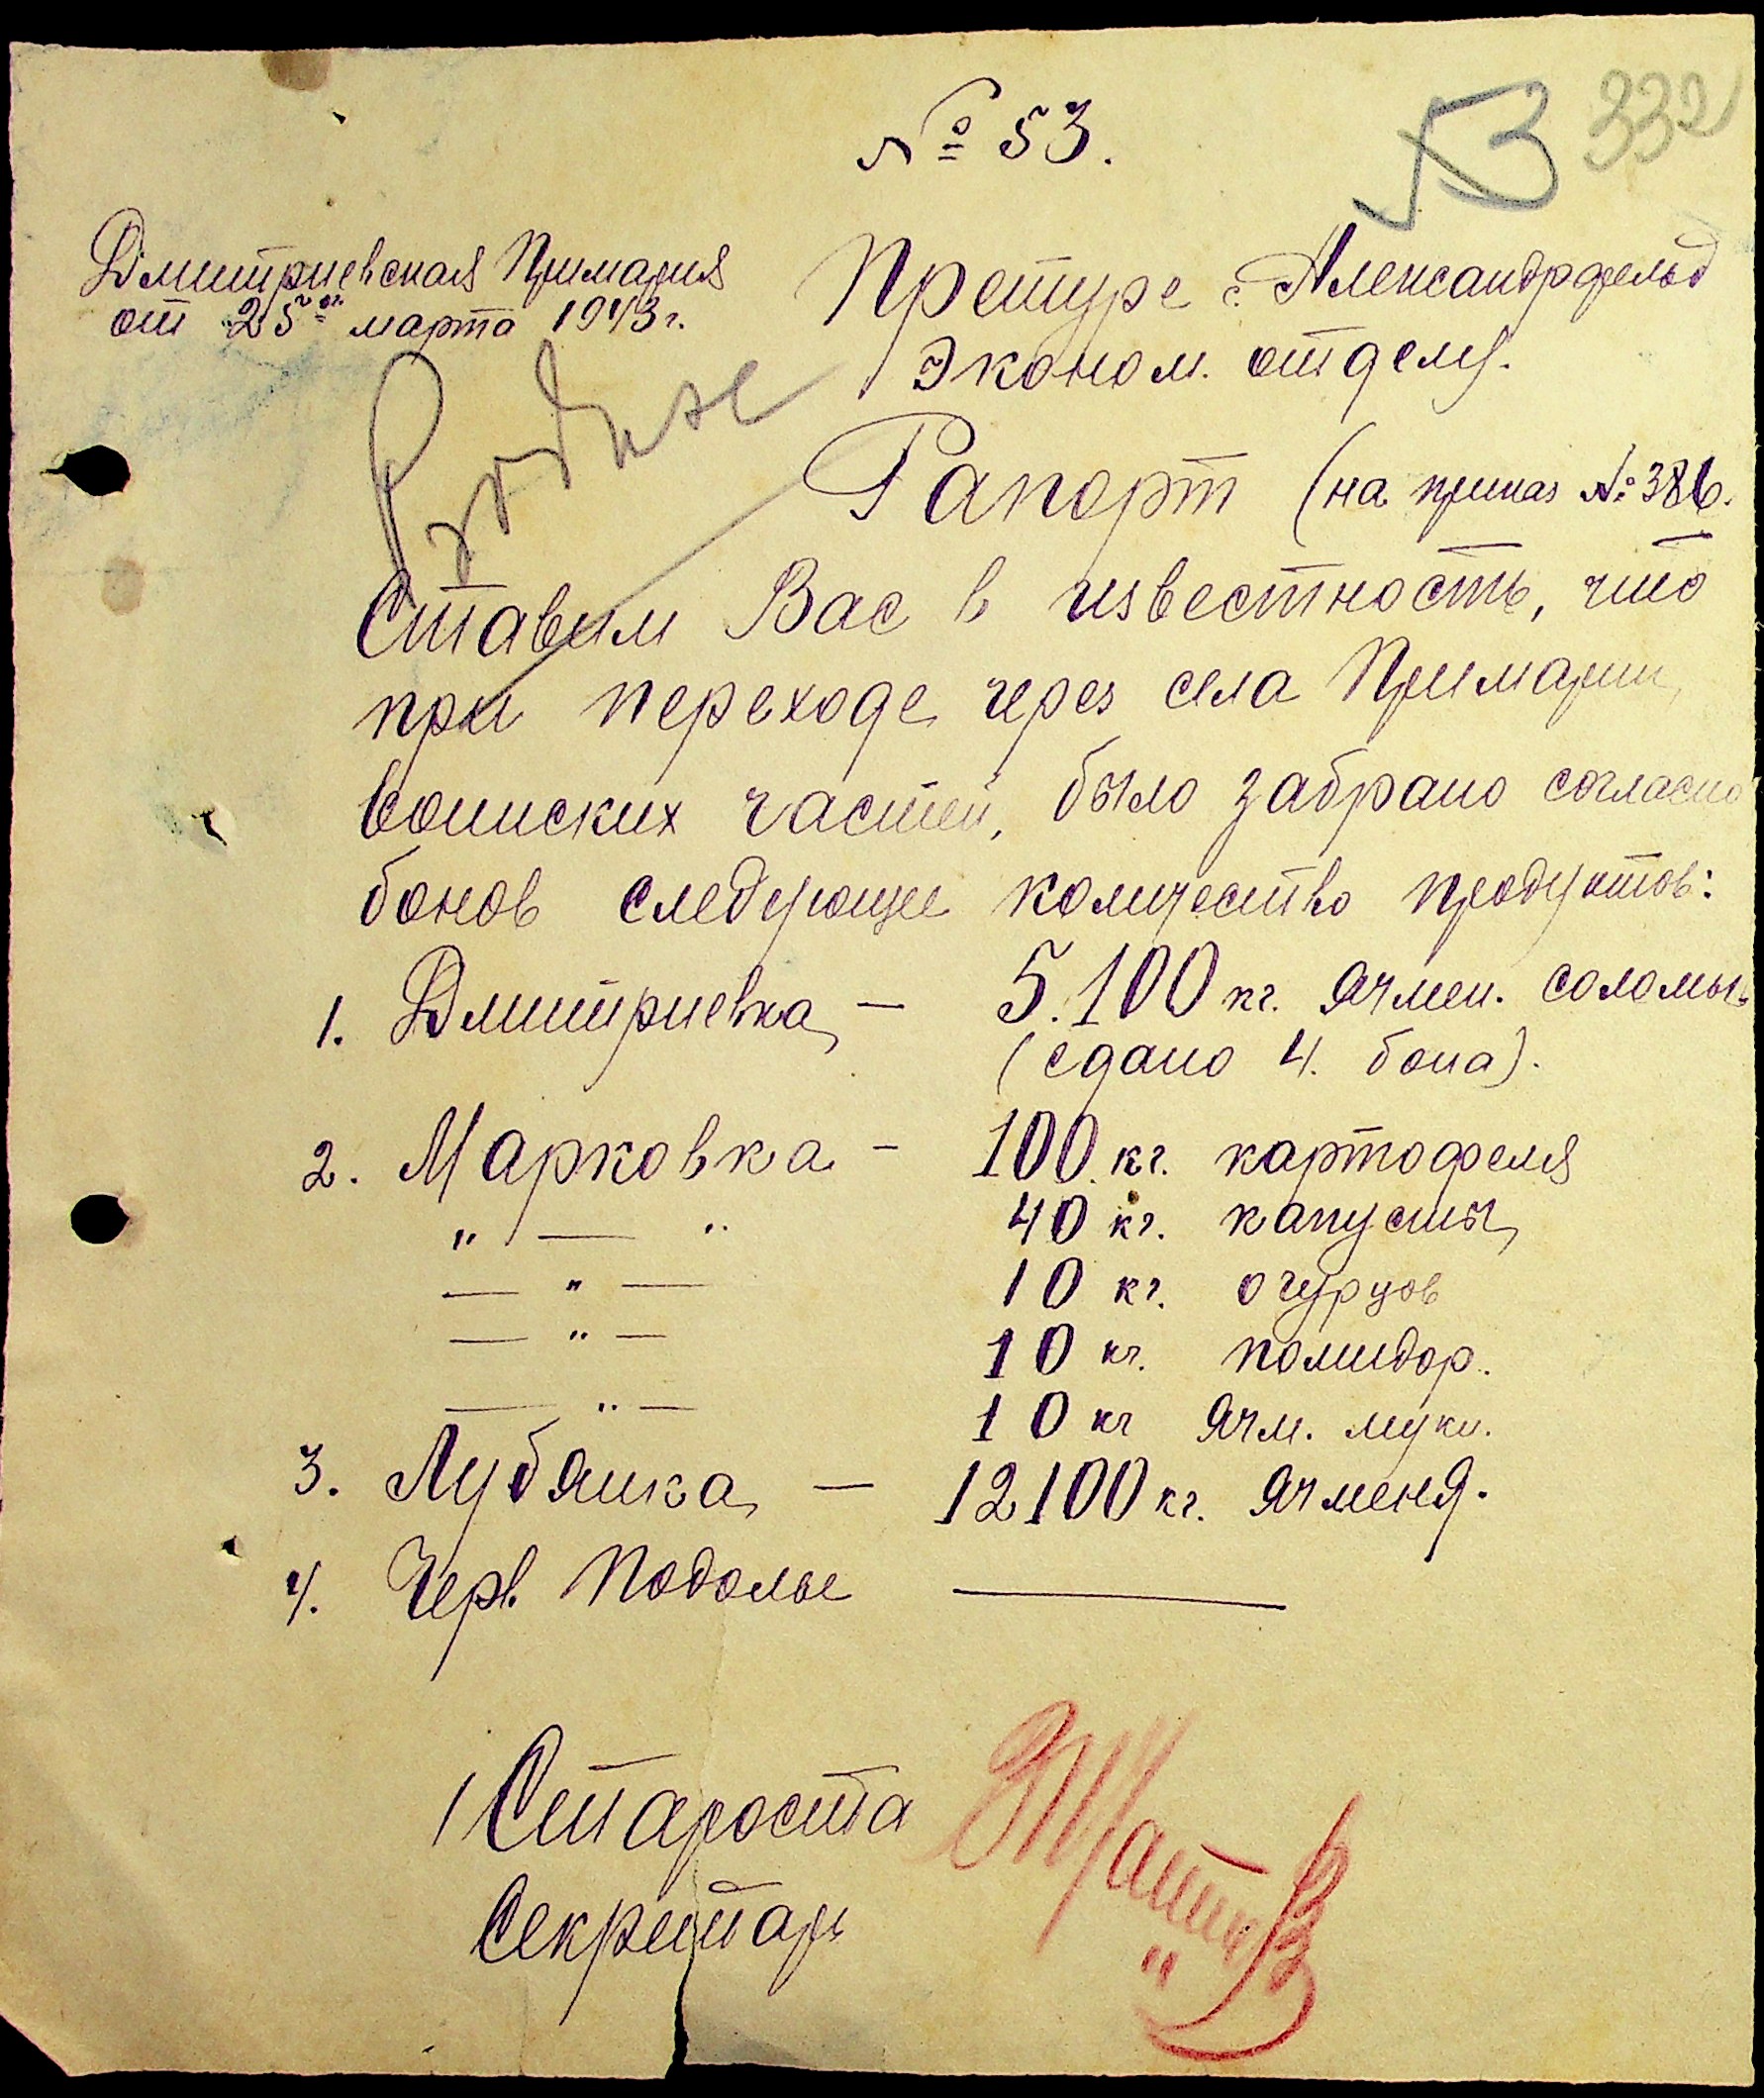 № 53.
332
Дмитриевская Примария
от 25го марта 1943 г.
Претуре с. Александрфельд
Эконом. отделу.
Produse
Рапорт (на приказ № 386.
Ставим Вас в известность, что
при переходе через села Примарии,
воинских частей, было забрано согласно
бонов следующее количество продуктов:
1. Дмитриевка, — 5.100 кг. ячмен. соломы
(сдано 4. бона).
2. Марковка — 100 кг. картофеля
„ — „ 40 кг. капусты,
— „ — 10 кг. огурцов
— „ — 10 кг. помидор.
— „ — 10 кг ячм. муки.
3. Лубянка, — 12100 кг. ячменя.
4. Черв. Подолье —
Староста
Секретарь